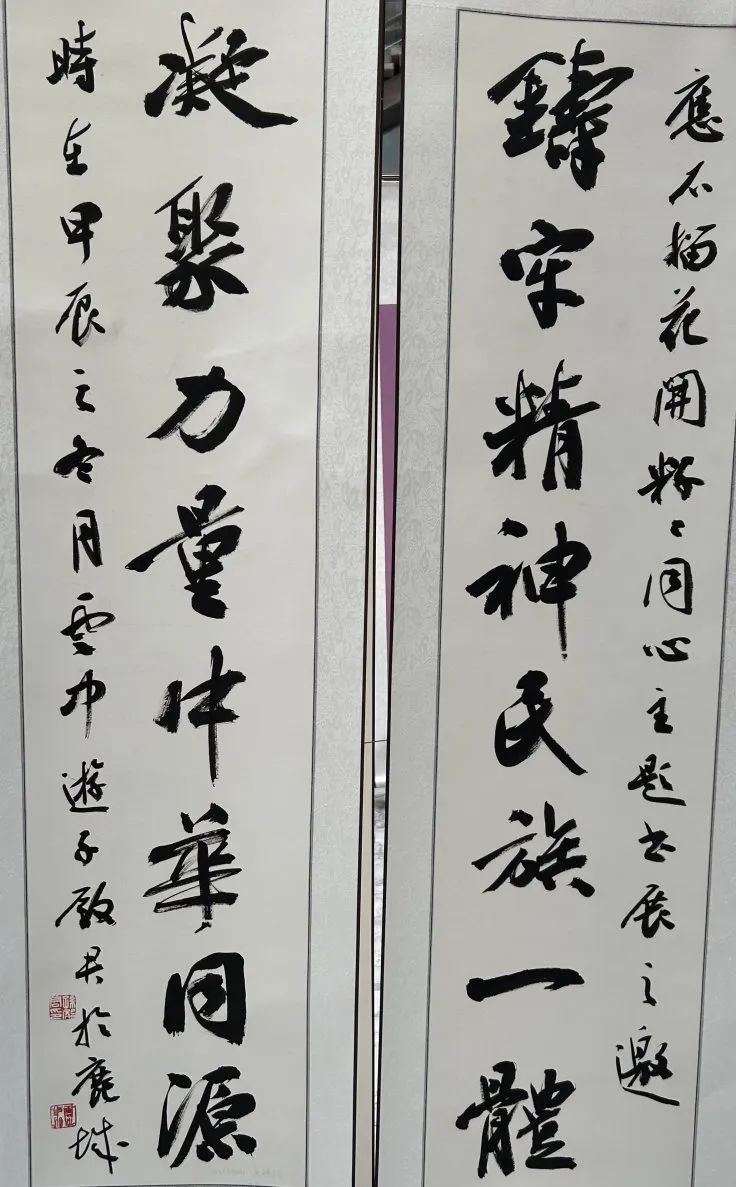 應石榴花開籽籽同心主題书展之邀
鑄牢精神民族一體
凝聚力量中華同源
時在甲辰之冬月雲中遊子啟君於鹿城